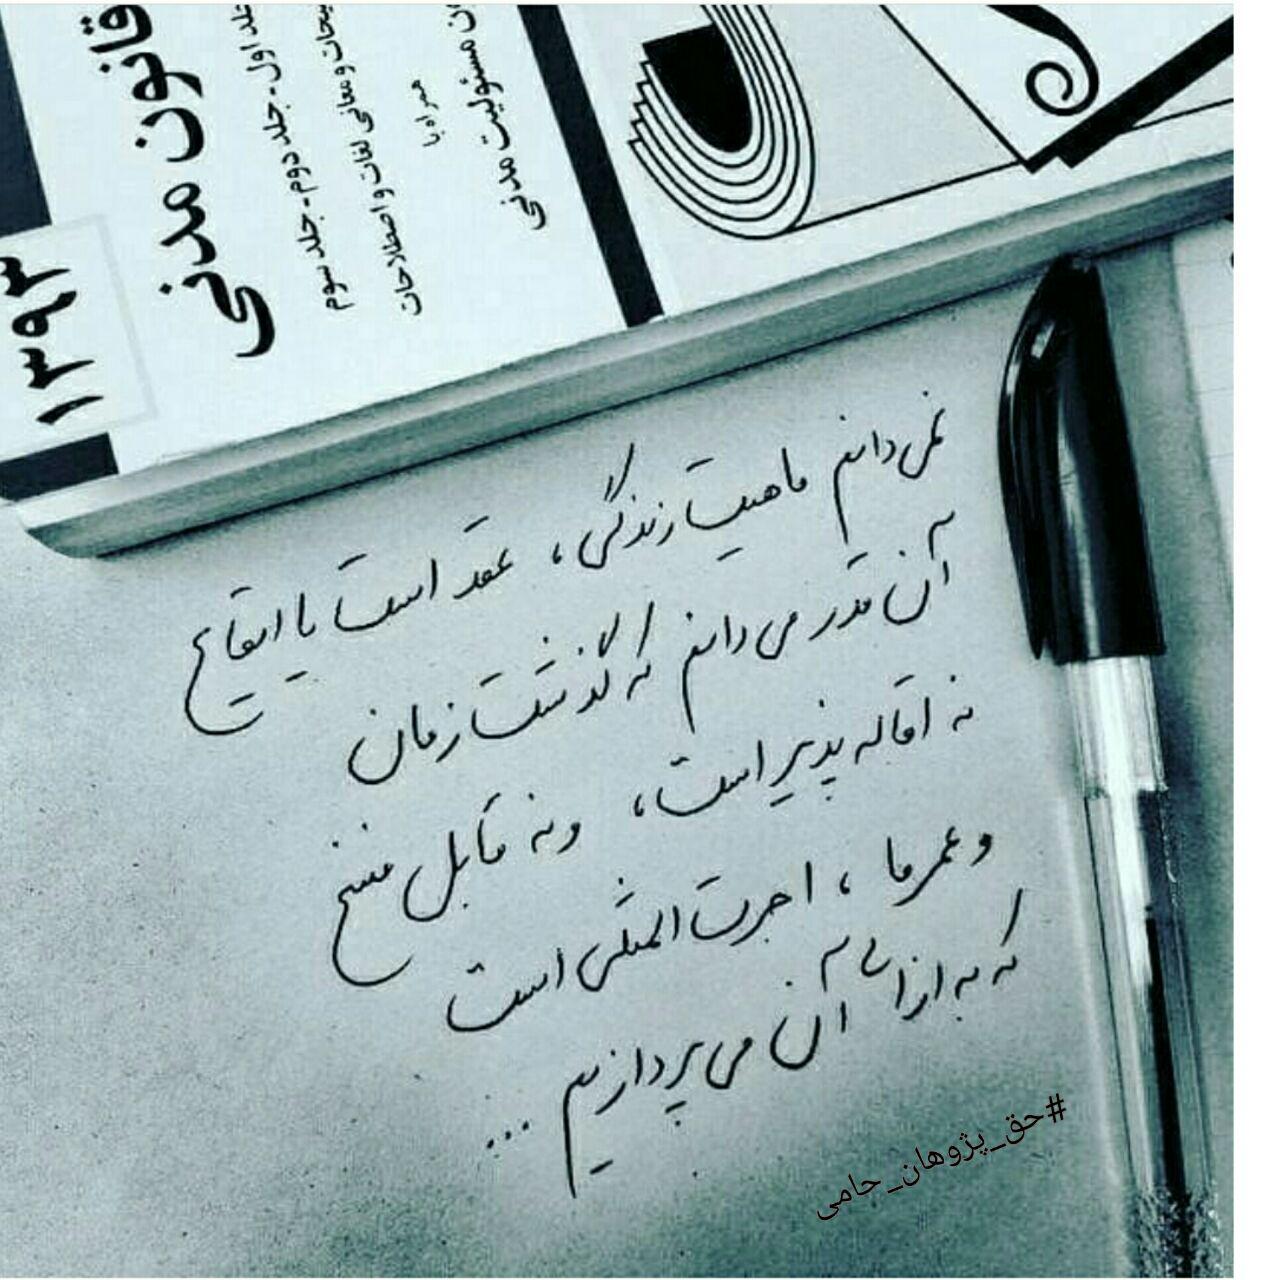 قانون مدنی
جلد اول - جلد دوم - جلد سوم
و معانی لغات و اصطلاحات
همراه با
مسئولیت مدنی
۱۳۹۳
نمی‌دانم ماهیت زندگی، عقد است یا ایقاع
آن قدر می‌دانم که گذشت زمان
نه اقاله پذیر است، ونه قابل فسخ
و عمر ما، اجرت المثلی است
که به ازای آن می‌پردازیم ...
#حق_پژوهان_حامی